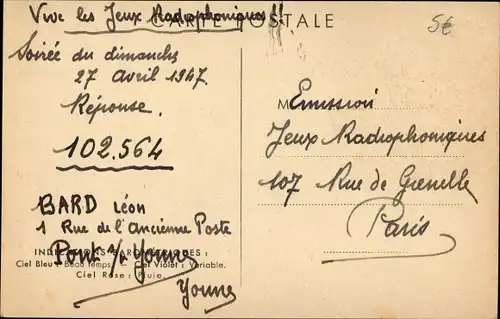 Vive les Jeux Radrophoniques !!
CARTE POSTALE
5€
Soirée du dimanche
27 avril 1947.
Réponse.
102.564
BARD Léon
1 Rue de l'Ancienne Poste
Pont s/ Yonne
Yonne
INDICATIONS BAROMÉTRIQUES :
Ciel Bleu : Beau Temps. — Ciel Violet : Variable.
Ciel Rose : Pluie.
M Emission
Jeux Radrophoniques
107 Rue de Grenelle
Paris